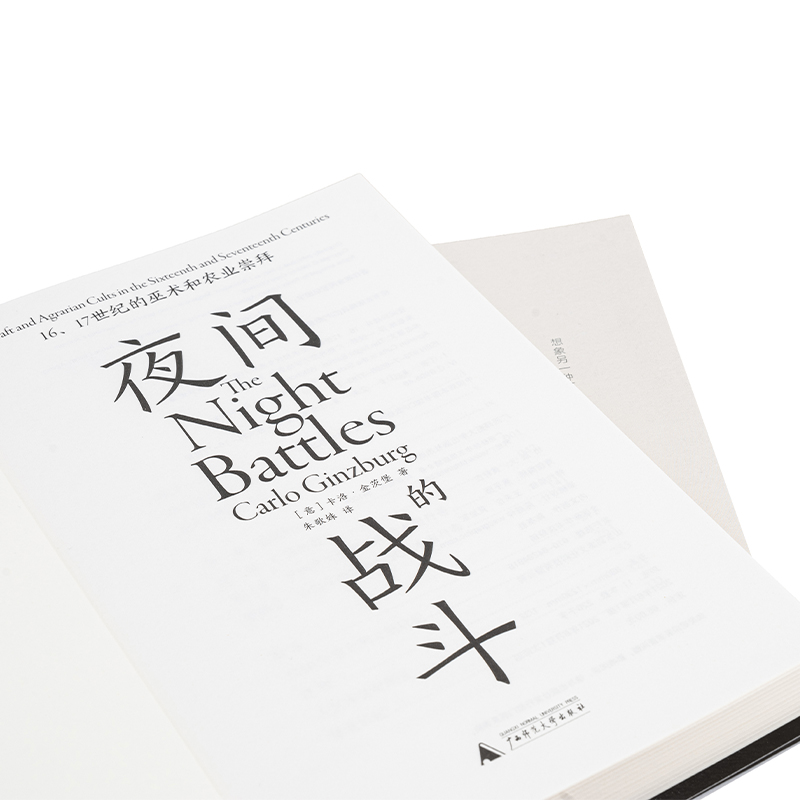 aft and Agrarian Cults in the Sixteenth and Seventeenth Centuries
16、17世纪的巫术和农业崇拜
夜间
The
Night
Battles
Carlo Ginzburg
[意]卡洛·金茨堡 著
朱歌姝 译
的
战
斗
GUANGXI NORMAL UNIVERSITY PRESS
广西师范大学出版社
想象另一种